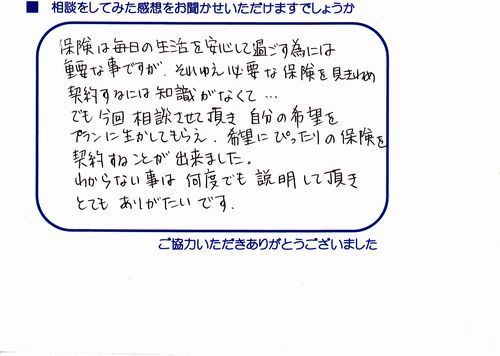 ■ 相談をしてみた感想をお聞かせいただけますでしょうか
保険は毎日の生活を安心して過ごす為には
重要な事ですが、それゆえ必要な保険を見きわめ
契約するには知識がなくて…
でも今回相談させて頂き 自分の希望を
プランに生かしてもらえ、希望にぴったりの保険を
契約することが出来ました。
わからない事は何度でも説明して頂き
とてもありがたいです.
ご協力いただきありがとうございました